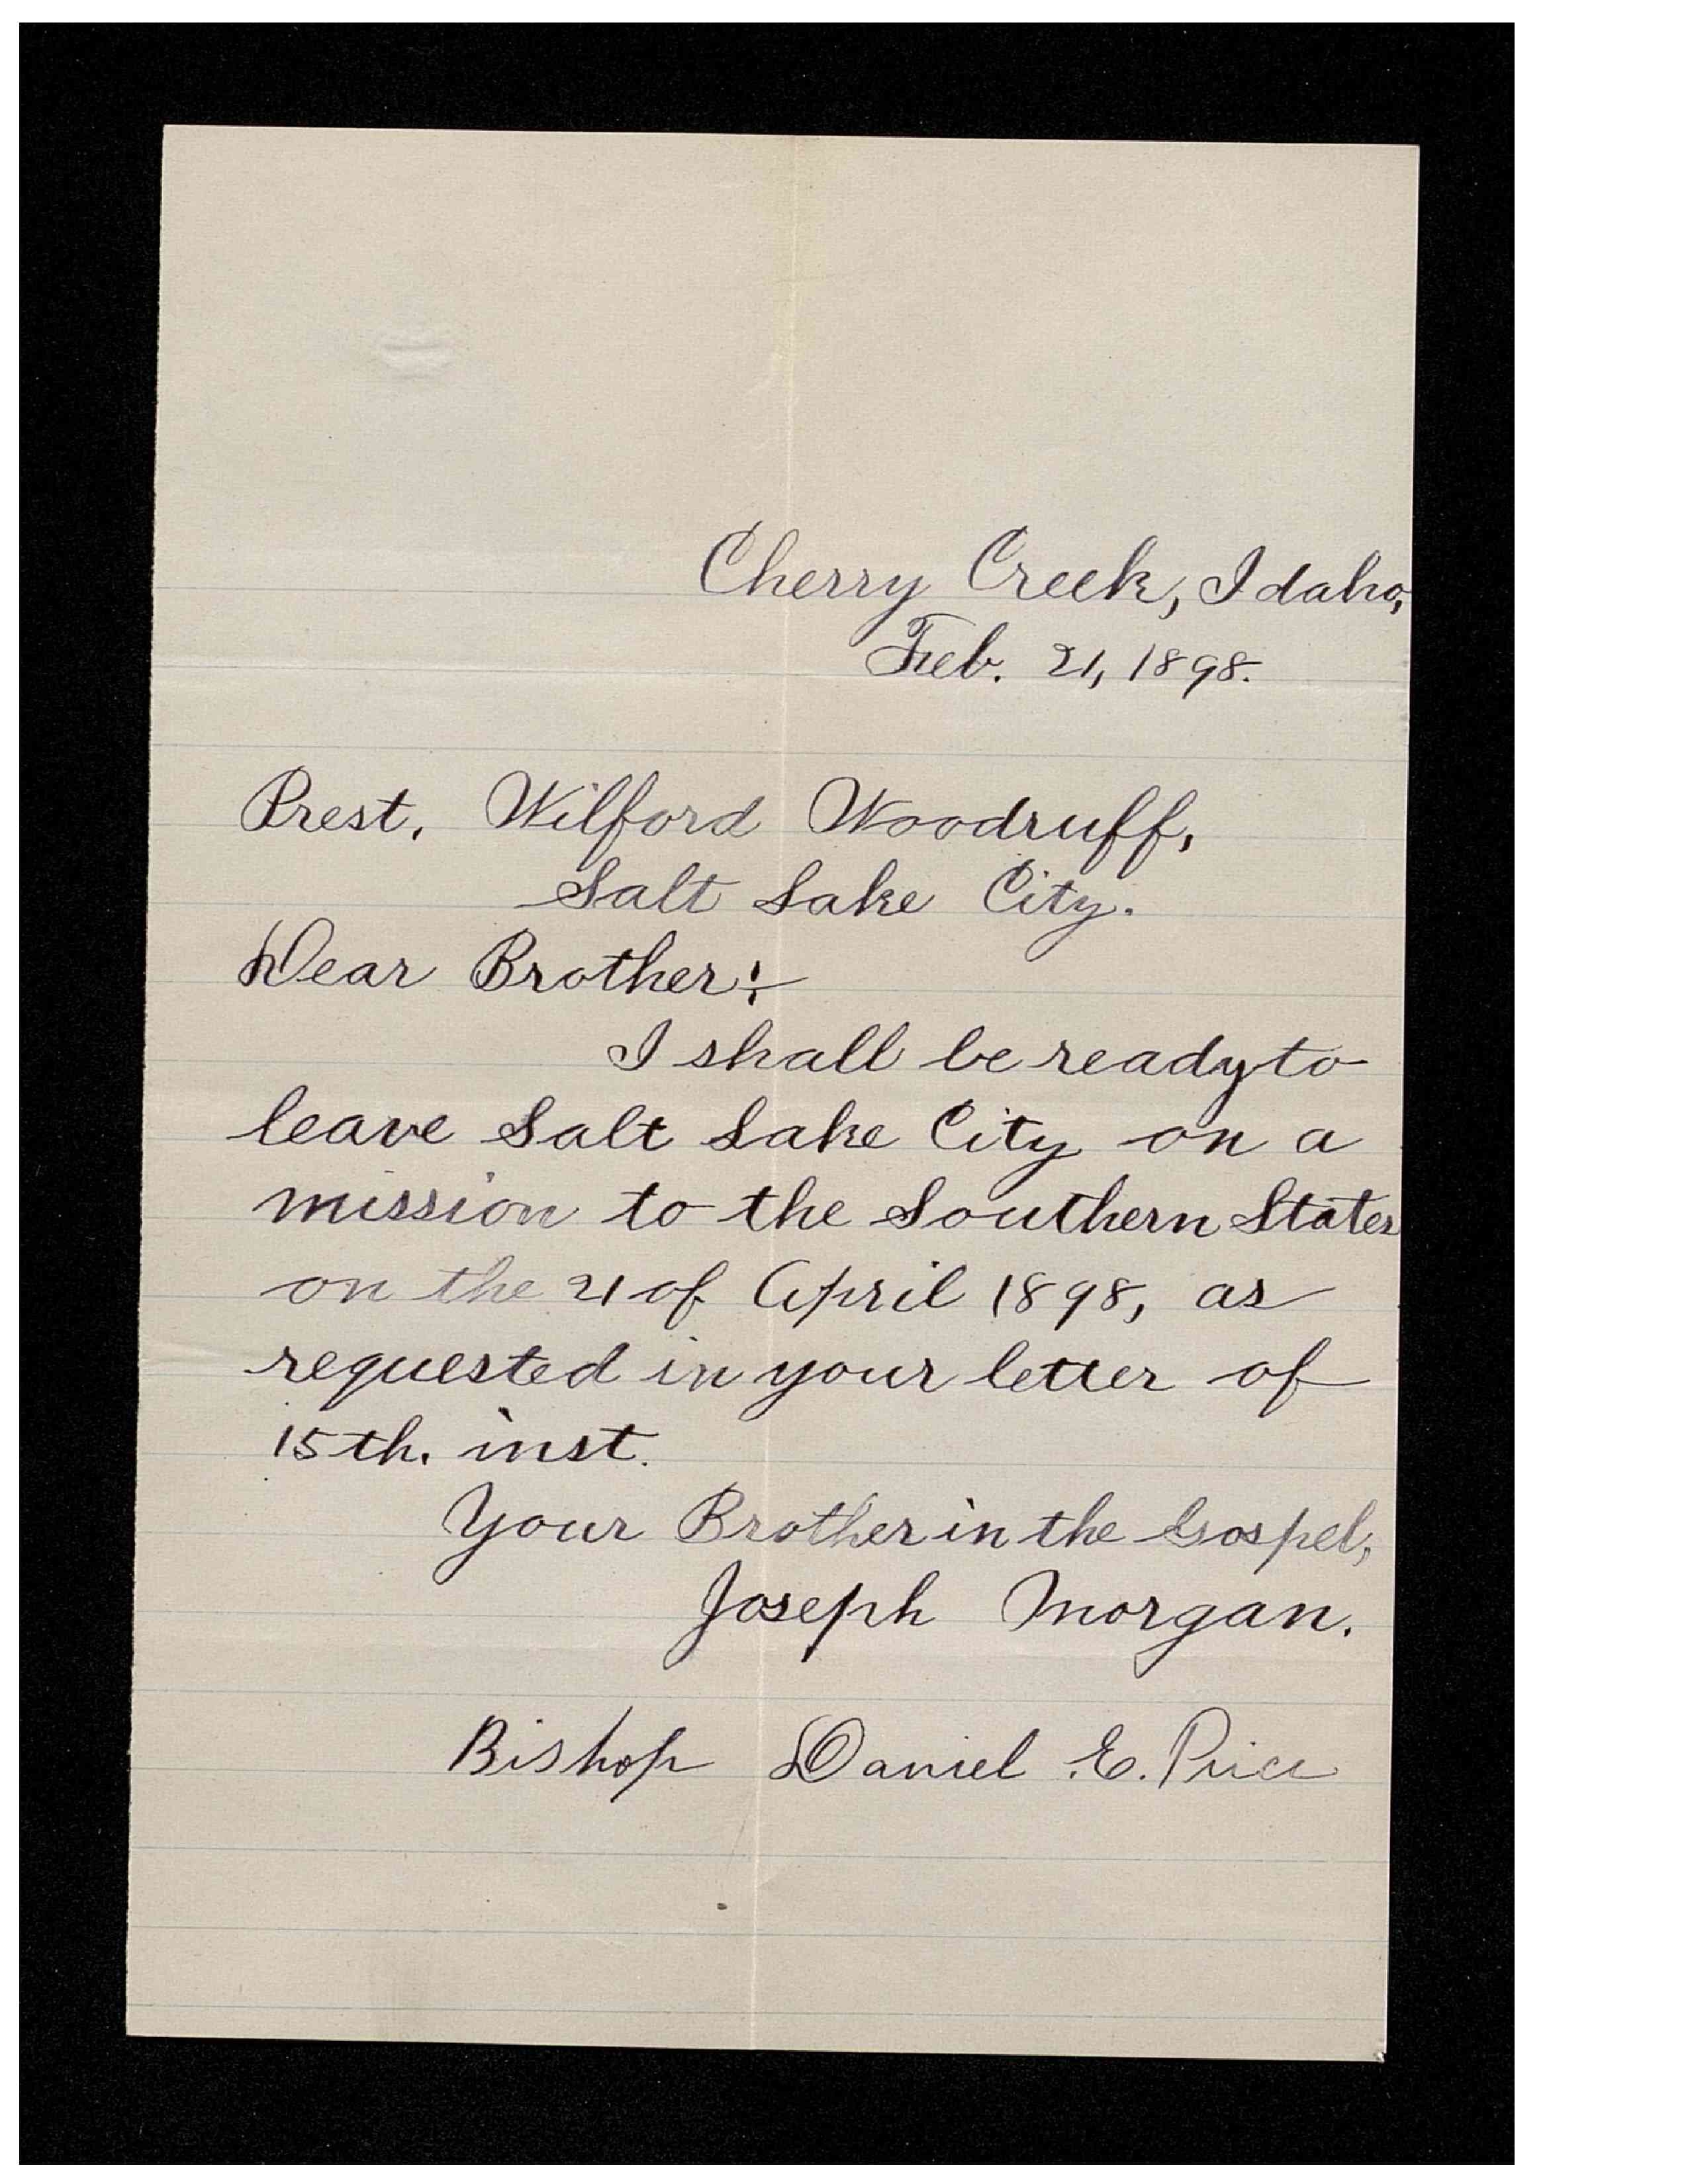 Cherry Creek, Idaho,
Feb. 21, 1898.
Prest. Wilford Woodruff,
Salt Lake City.
Dear Brother:-
I shall be ready to
leave Salt Lake City on a
mission to the Southern States
on the 21 of April 1898, as
requested in your letter of
15th. inst.
Your Brother in the Gospel,
Joseph Morgan.
Bishop Daniel E. Price